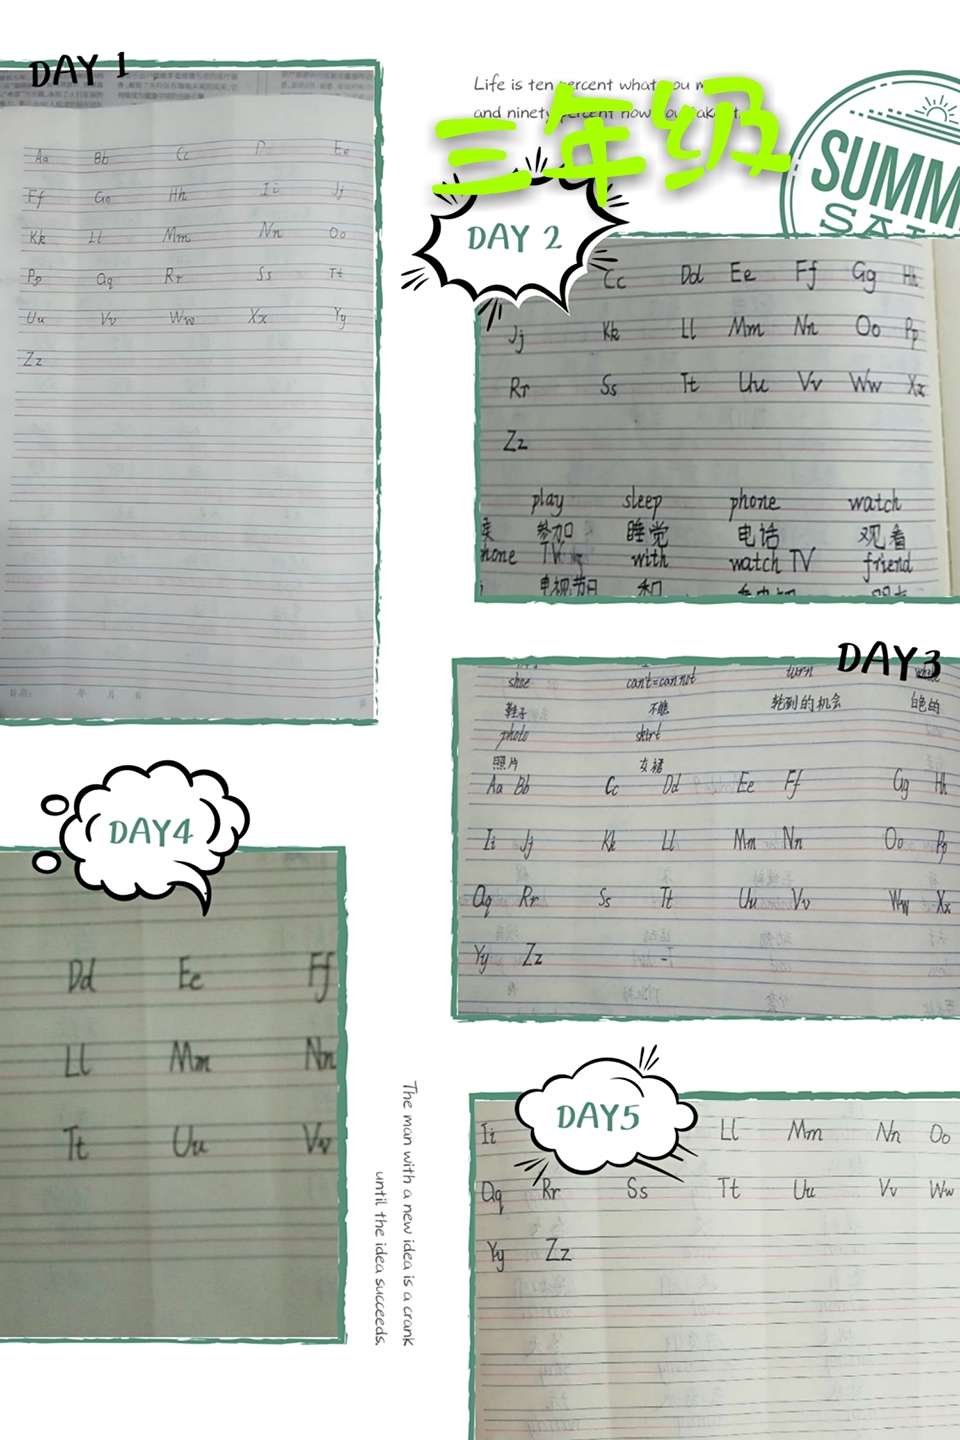 DAY 1
Aa Bb Cc D Ee
Ff Gg Hh Ii Jj
Kk Ll Mm Nn Oo
Pp Qq Rr Ss Tt
Uu Vv Ww Xx Yy
Zz
Life is ten percent what you m
and ninety percent how you take it.
三年级
SUMM
SAL
DAY 2
Cc Dd Ee Ff Gg Hh
Jj Kk Ll Mm Nn Oo Pp
Rr Ss Tt Uu Vv Ww Xx
Zz
play sleep phone watch
参加 睡觉 电话 观看
hone TV with watch TV friend
电视节目 和
DAY3
shoe can't=cannot turn white
鞋子 不能 轮到的机会 白色的
photo skirt
照片 女裙
Aa Bb Cc Dd Ee Ff Gg Hh
Ii Jj Kk Ll Mm Nn Oo Pp
Qq Rr Ss Tt Uu Vv Ww Xx
Yy Zz
DAY4
Dd Ee Ff
Ll Mm Nn
Tt Uu Vv
The man with a new idea is a crank
until the idea succeeds.
DAY5
Ii Ll Mm Nn Oo
Qq Rr Ss Tt Uu Vv Ww
Yy Zz